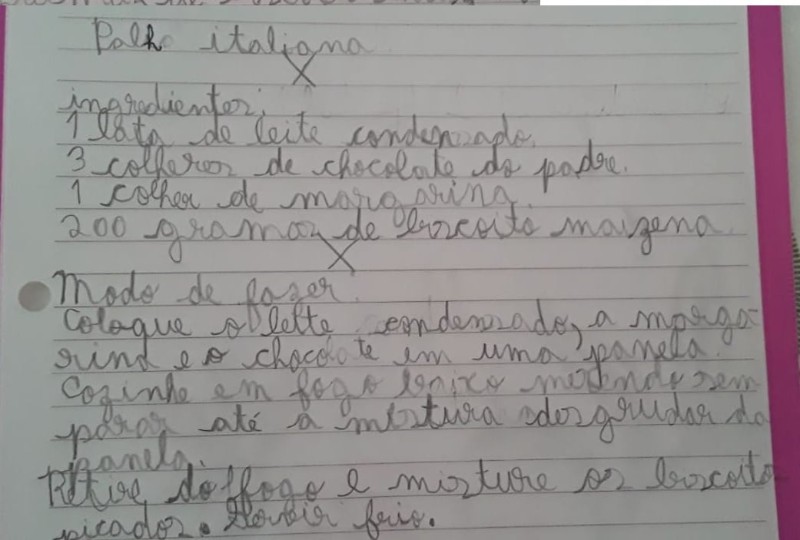 Palha italiana
X
ingredientes.
1 lata de leite condensado.
3 colheres de chocolate do padre.
1 colher de margarina.
200 gramas de biscoito maizena
X
Modo de fazer.
Coloque o leite condensado, a marga-
rina e o chocolate em uma panela.
Cozinhe em fogo baixo mexendo sem
parar até a mistura desgrudar da
panela.
Retire do fogo e misture os biscoito
picados. frio.